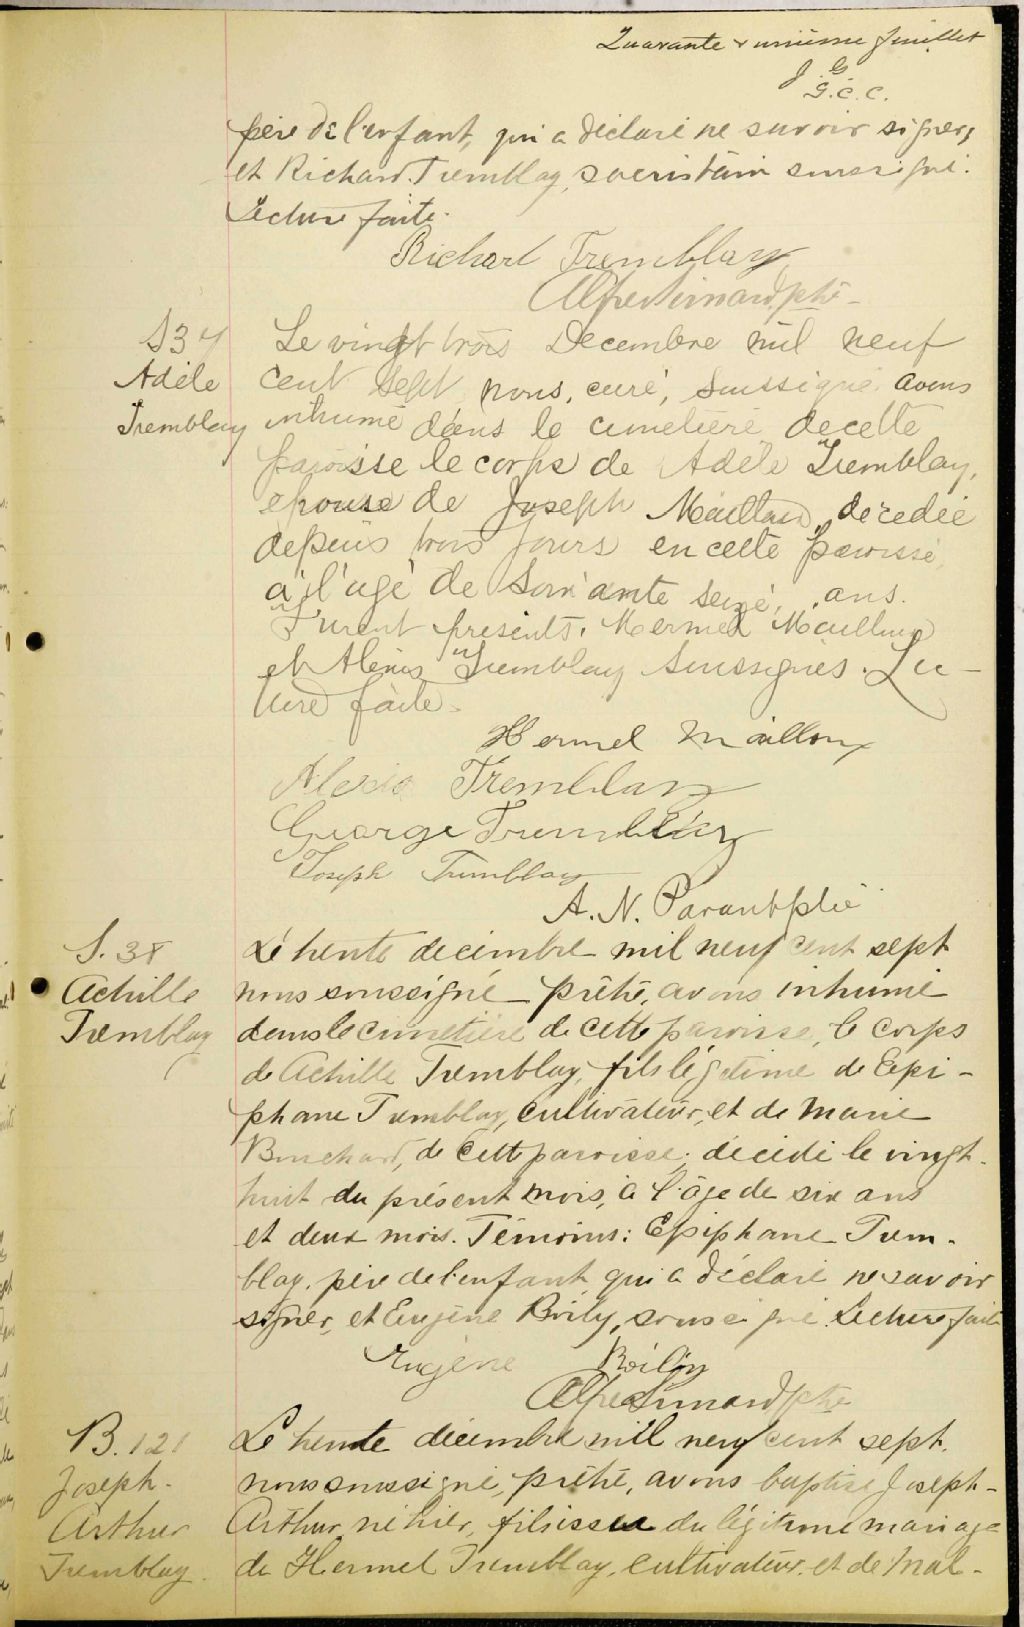 Quarante & unième feuillet
J. G.
G.C.C.
père de l'enfant, qui a déclaré ne savoir signer,
et Richard Tremblay, sacristain soussigné.
Lecture faite.
Richard Tremblay
Alfred Simard, ptre
S 37
Adèle
Tremblay
Le vingt trois Decembre mil neuf
cent sept nous, curé, soussigné avons
inhumé dans le cimetière de cette
paroisse le corps de Adèle Tremblay,
épouse de Joseph Mailloux, décédée
depuis trois jours en cette paroisse,
à l'âge de soixante seize, ans.
Furent présents. Hermel Mailloux
et Alexis Tremblay soussignés. Lec-
ture faite.
Hermel Mailloux
Alexis Tremblay
George Tremblay
Joseph Tremblay
A. N. Parant ptre
S. 38
Achille
Tremblay
Le trente décembre mil neuf cent sept
nous soussigné prêtre, avons inhumé
dans le cimetière de cette paroisse, le corps
de Achille Tremblay, fils légitime de Epi-
phane Tremblay, cultivateur, et de Marie
Bouchard, de cette paroisse, décédé le vingt-
huit du présent mois, à l'âge de six ans
et deux mois. Témoins: Epiphane Trem-
blay, père de l'enfant qui a déclaré ne savoir
signer, et Eugène Boily, soussigné. Lecture faite
Eugène Boily
Alfred Simard, ptre
B. 121
Joseph-
Arthur
Tremblay.
Le trente décembre mil neuf cent sept.
nous soussigné, prêtre, avons baptisé Joseph-
Arthur, né hier, fils issu du légitime mariage
de Hermel Tremblay, cultivateur, et de Mal-